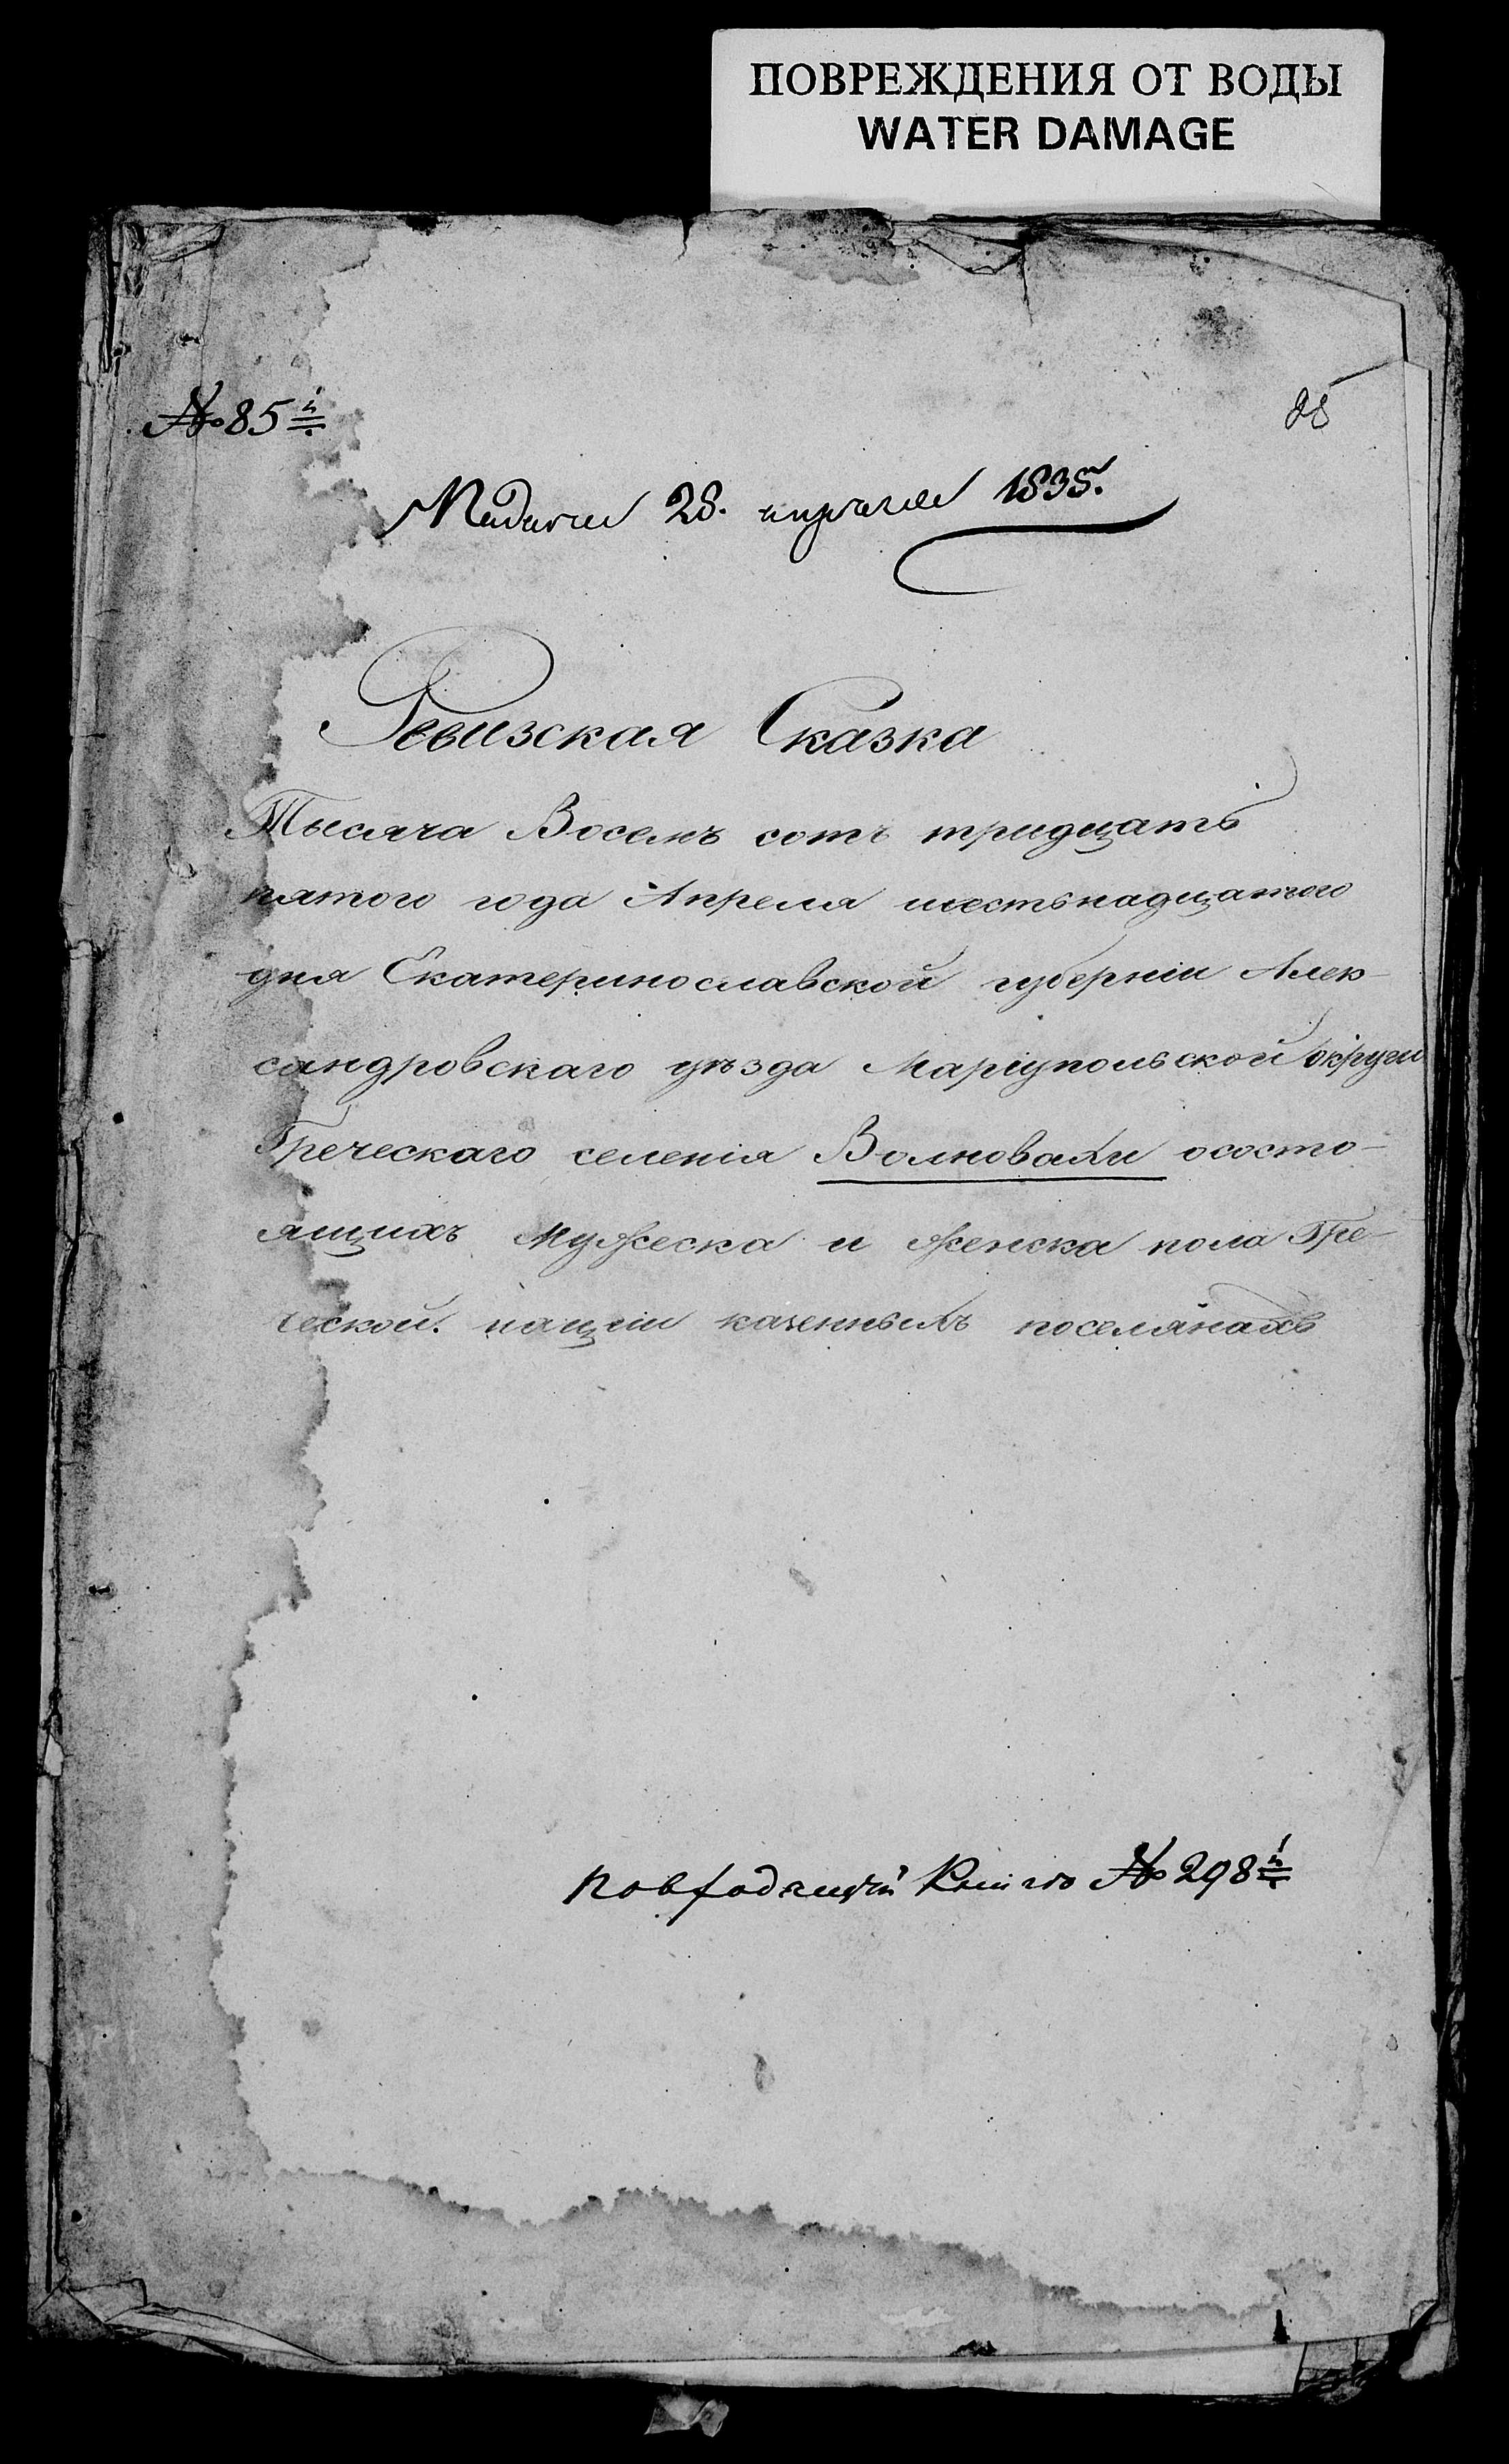 ПОВРЕЖДЕНИЯ ОТ ВОДЫ
WATER DAMAGE
№ 85й
28. апреля 1835.
Ревизская Сказка
Тысяча Восемъ сотъ тридцать
пятого года Апреля шестьнадцатого
дня Екатеринославской губерніи Алек-
сандровскаго уѣзда Маріупольской округи
Греческаго селенія Волновахи ососто-
ящихъ Мужеска и женска пола Гре-
ческой націи казенныхъ поселянахъ
повходящей Книги № 298й